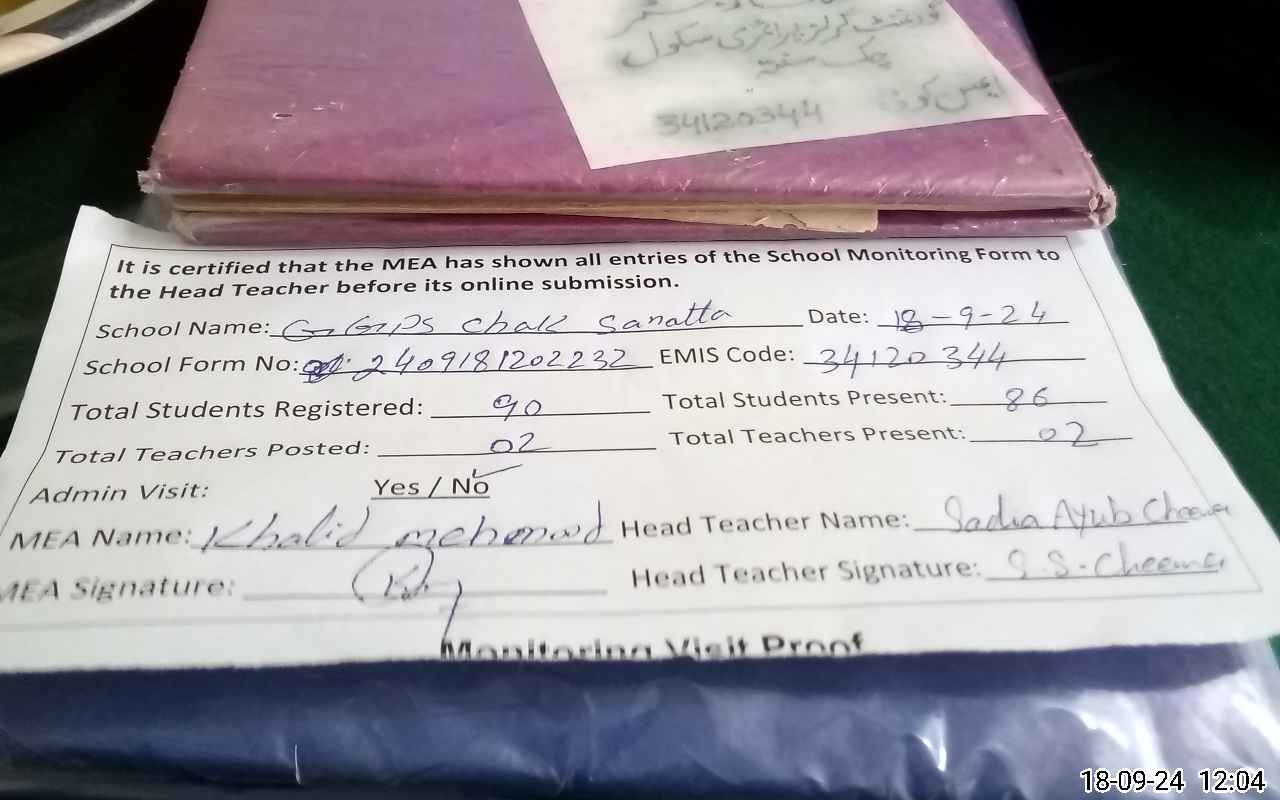 گورنمنٹ گرلز پرائمری سکول
چک سنتہ
ایمس کوڈ 34120344
It is certified that the MEA has shown all entries of the School Monitoring Form to
the Head Teacher before its online submission.
School Name: GGPS Chak Sanatta Date: 18-9-24
School Form No: 2409181202232 EMIS Code: 34120344
Total Students Registered: 90 Total Students Present: 86
Total Teachers Posted: 02 Total Teachers Present: 02
Admin Visit: Yes / No
MEA Name: Khalid mehmood Head Teacher Name: Sadia Ayub Cheema
MEA Signature: Head Teacher Signature: S.S-Cheema
Monitoring Visit Proof
18-09-24 12:04